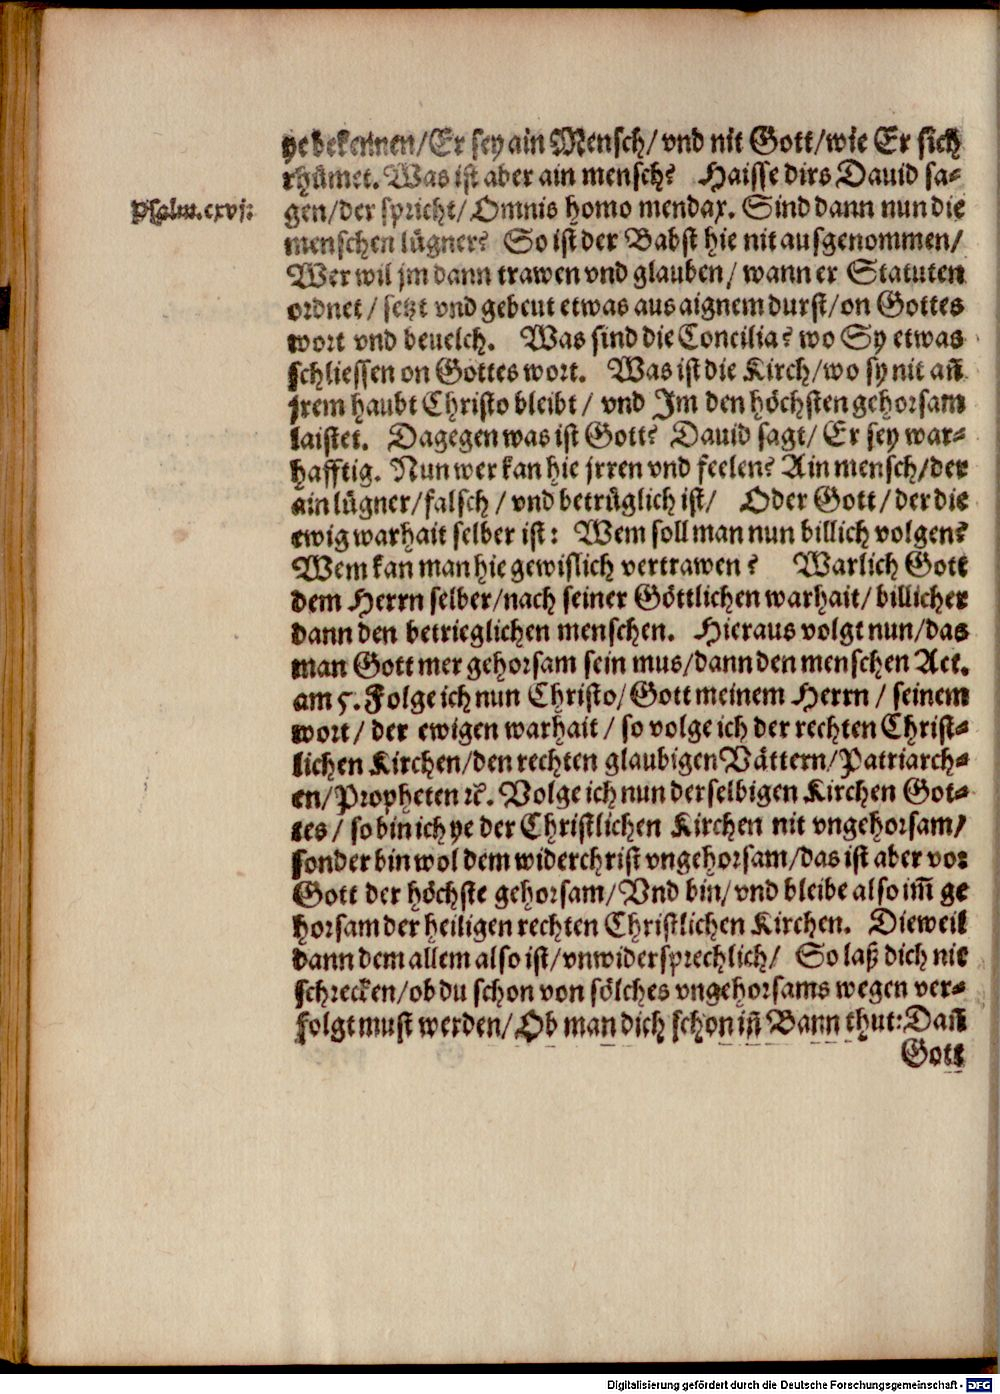 ye bekennen/ Er sey ain Mensch/ vnd nit Gott/ wie Er sich
rhümet. Was ist aber ain mensch? Haisse dirs Dauid sa-
Psalm. cxvj:
gen/ der spricht/ Omnis homo mendax. Sind dann nun die
menschen lügner? So ist der Babst hie nit ausgenommen/
Wer wil jm dann trawen vnd glauben/ wann er Statuten
ordnet/ setzt vnd gebeut etwas aus aignem durst/ on Gottes
wort vnd beuelch. Was sind die Concilia? wo Sy etwas
schliessen on Gottes wort. Was ist die Kirch/ wo sy nit añ
jrem haubt Christo bleibt/ vnd Im den höchsten gehorsam
laistet. Dagegen was ist Gott? Dauid sagt/ Er sey war-
hafftig. Nun wer kan hie jrren vnd feelen? Ain mensch/ der
ain lügner/ falsch/ vnd betrüglich ist/ Oder Gott/ der die
ewig warhait selber ist: Wem soll man nun billich volgen?
Wem kan man hie gewislich vertrawen? Warlich Gott
dem Herrn selber/ nach seiner Göttlichen warhait/ billicher
dann den betrieglichen menschen. Hieraus volgt nun/ das
man Gott mer gehorsam sein mus/ dann den menschen Act.
am 5. Folge ich nun Christo/ Gott meinem Herrn/ seinem
wort/ der ewigen warhait/ so volge ich der rechten Christ-
lichen Kirchen/ den rechten glaubigen Vättern/ Patriarch-
en/ Propheten ꝛc. Volge ich nun derselbigen Kirchen Got-
tes/ so bin ich ye der Christlichen Kirchen nit vngehorsam/
sonder bin wol dem widerchrist vngehorsam/ das ist aber vor
Gott der höchste gehorsam/ Vnd bin/ vnd bleibe also im̃ ge
horsam der heiligen rechten Christlichen Kirchen. Dieweil
dann dem allem also ist/ vnwidersprechlich/ So laß dich nit
schrecken/ ob du schon von sölches vngehorsams wegen ver-
folgt must werden/ Ob man dich schon iñ Bann thut: Dañ
Gott
Digitalisierung gefördert durch die Deutsche Forschungsgemeinschaft - DFG